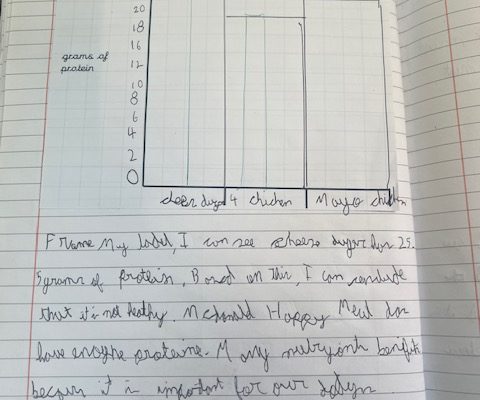 20
18
16
grams of
12
protein
10
8
6
4
2
0
cheez burger 4 chicken Mayo chicken
Frome My label, I can see cheese burger has 25.
5 grams of protein. Based on this, I can conclude
that it is not healthy. McDonald Happy Meal
have proteine. benefits
because it is important for our